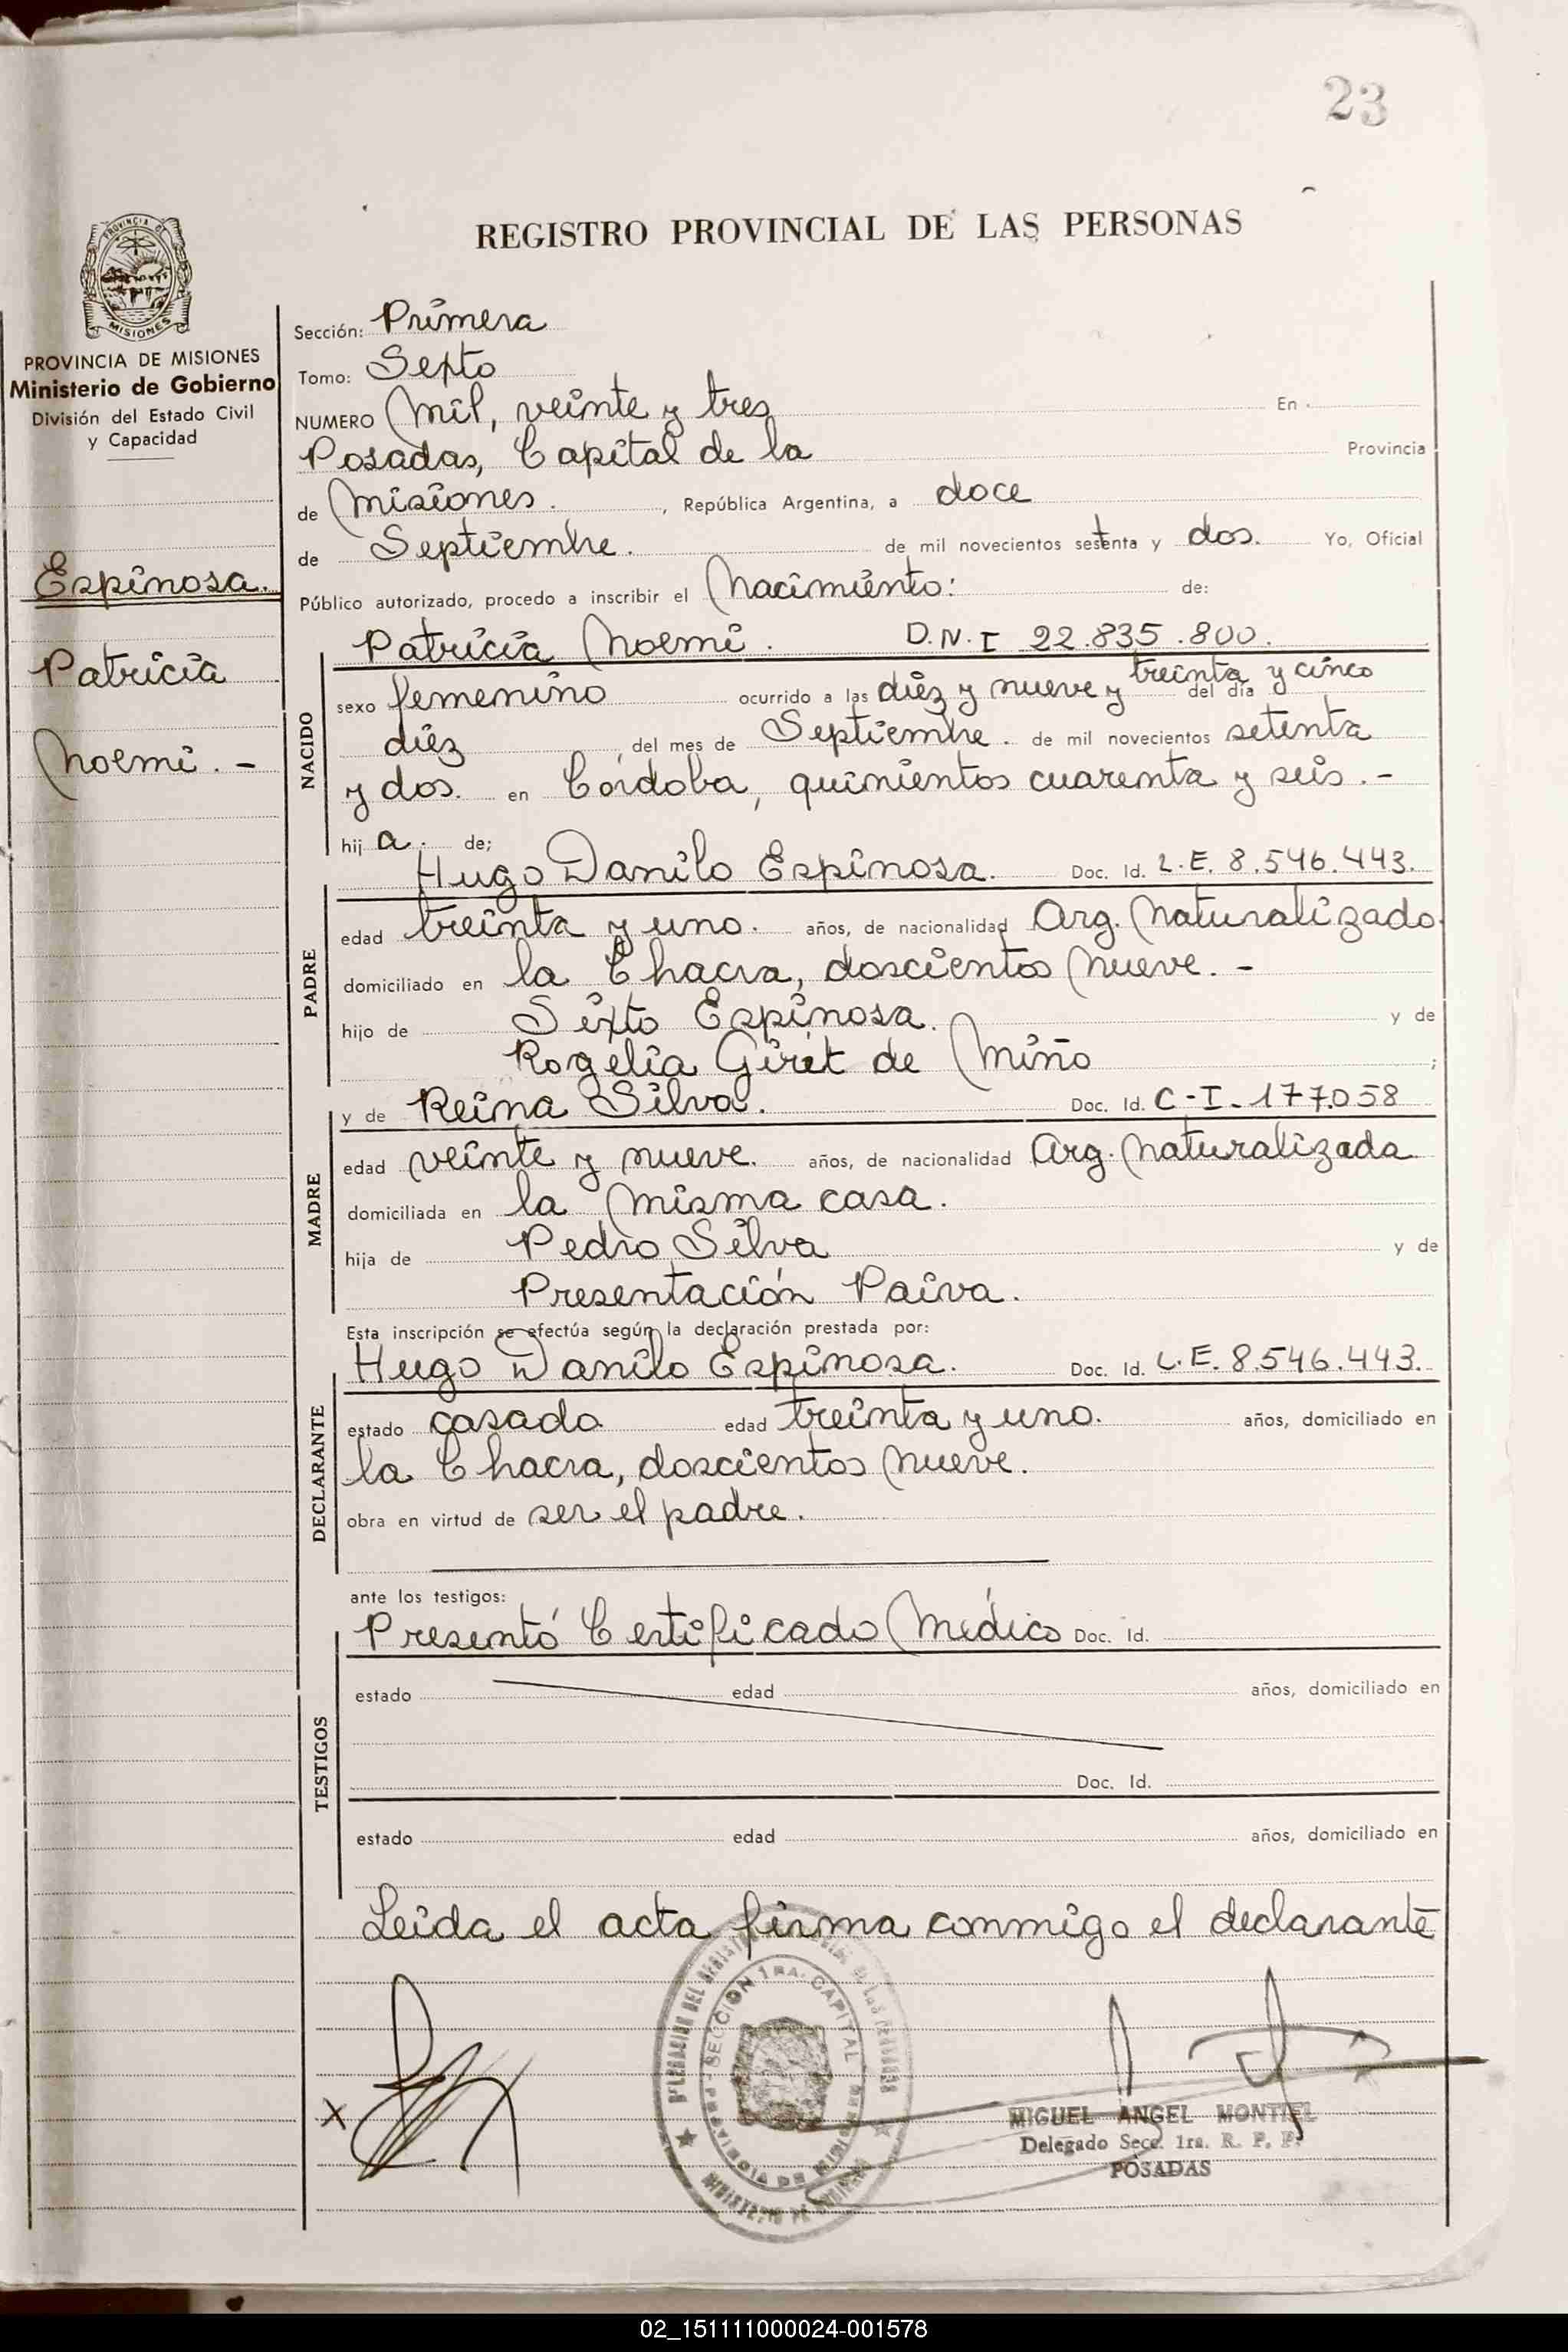 23
REGISTRO PROVINCIAL DE LAS PERSONAS
PROVINCIA DE MISIONES
Ministerio de Gobierno
División del Estado Civil
y Capacidad
Espinosa.
Patricia
Noemi. -
Sección: Primera
Tomo: Sexto
NUMERO Mil, veinte y tres En
Posadas, Capital de la Provincia
de Misiones. , República Argentina, a doce
de Septiembre. de mil novecientos setenta y dos. Yo, Oficial
Público autorizado, procedo a inscribir el Nacimiento: de:
Patricia Noemi. D.N.I 22.835.800.
NACIDO
sexo femenino ocurrido a las diez y nueve y treinta y cinco del día
diez , del mes de Septiembre. de mil novecientos setenta
y dos. en Córdoba, quinientos cuarenta y seis. -
hij a. de;
Hugo Danilo Espinosa. Doc. Id. L.E. 8.546.443.
PADRE
edad treinta y uno. años, de nacionalidad Arg. Naturalizado.
domiciliado en la Chacra, doscientos nueve. -
hijo de Sixto Espinosa. y de
Rogelia Giret de Miño ;
y de Reina Silva. Doc. Id. C-I- 177.058
MADRE
edad veinte y nueve. años, de nacionalidad Arg. Naturalizada
domiciliada en la misma casa.
hija de Pedro Silva y de
Presentación Paiva.
Esta inscripción se efectúa según la declaración prestada por:
Hugo Danilo Espinosa. Doc. Id. L.E. 8.546.443.
DECLARANTE
estado casado edad treinta y uno. años, domiciliado en
la Chacra, doscientos nueve.
obra en virtud de ser el padre.
ante los testigos:
Presentó Certificado Médico Doc. Id.
TESTIGOS
estado edad años, domiciliado en
Doc. Id.
estado edad años, domiciliado en
Leida el acta firma conmigo el declarante
SECCION 1RA. CAPITAL
X
MIGUEL ANGEL MONTIEL
Delegado Secc. 1ra. R. P. P.
POSADAS
02_151111000024-001578